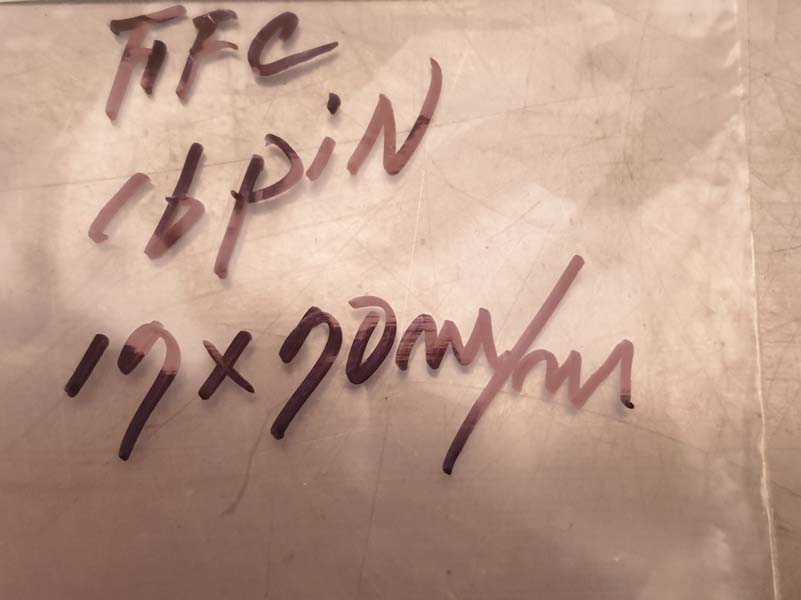 FFC
16 piN
17 x 70 m/m